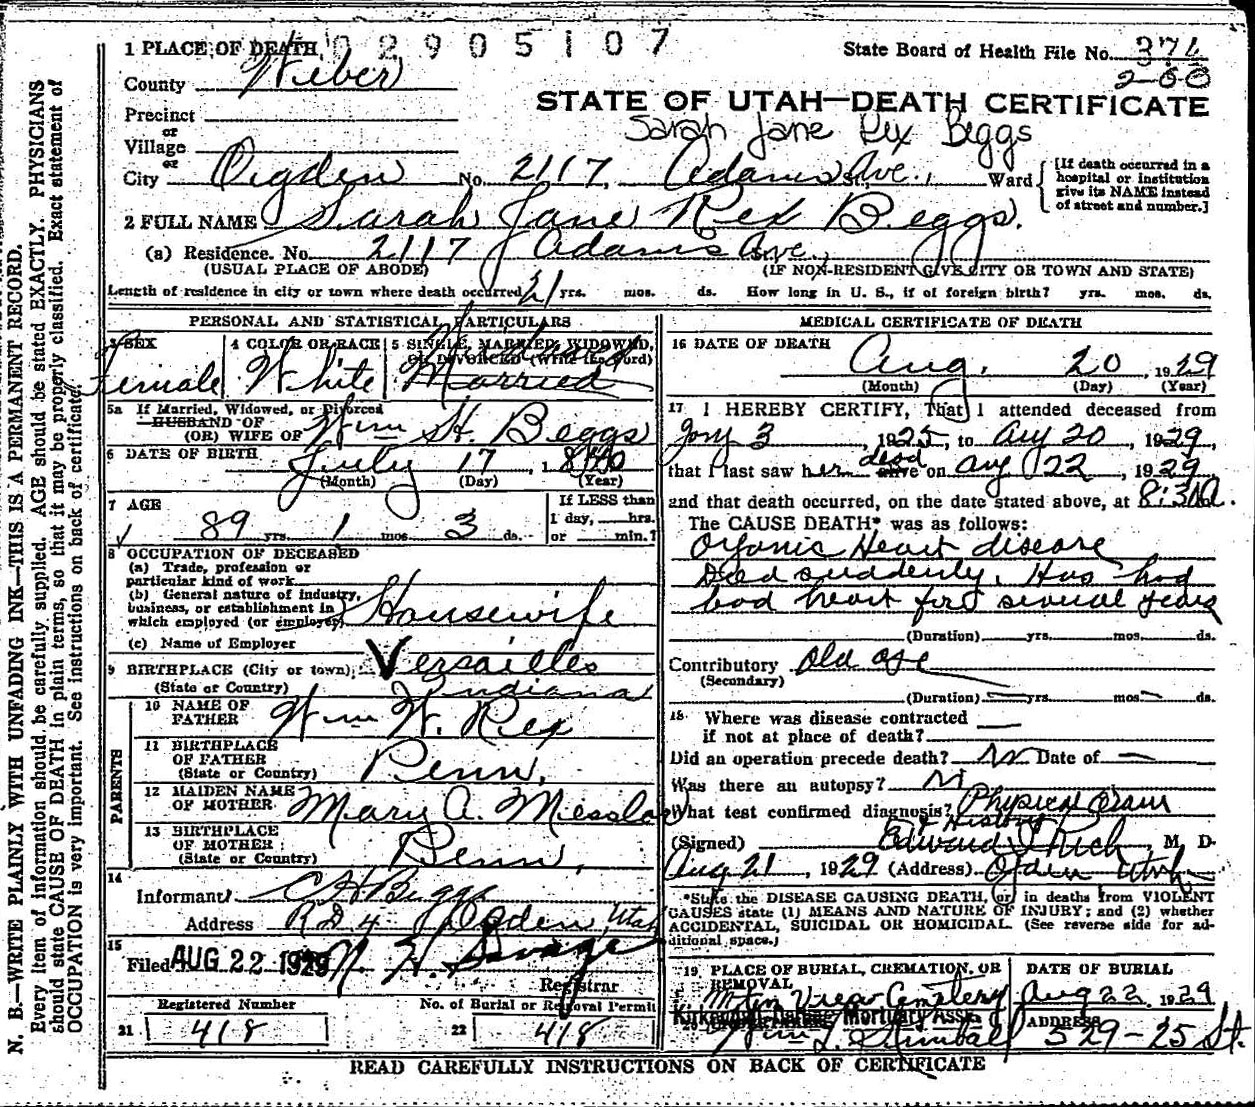 1 PLACE OF DEATH 02905107 State Board of Health File No. 371
2-00
County Weber
STATE OF UTAH—DEATH CERTIFICATE
Precinct
or
Village
or
Sarah Jane Rex Beggs
City Ogden No. 2117, Adams Ave., Ward
[If death occurred in a hospital or institution give its NAME instead of street and number.]
2 FULL NAME Sarah Jane Rex Beggs.
(a) Residence. No. 2117 Adams Ave.,
(USUAL PLACE OF ABODE) (IF NON-RESIDENT GIVE CITY OR TOWN AND STATE)
Length of residence in city or town where death occurred 21 yrs. mos. ds. How long in U. S., if of foreign birth? yrs. mos. ds.
PERSONAL AND STATISTICAL PARTICULARS
3 SEX Female
4 COLOR OR RACE White
5 SINGLE, MARRIED, WIDOWED, OR DIVORCED (Write the word)
Widowed
Married
5a If Married, Widowed, or Divorced
HUSBAND OF
(OR) WIFE OF Wm H. Beggs
6 DATE OF BIRTH July 17, 1840
(Month) (Day) (Year)
7 AGE 89 yrs. 1 mos. 3 ds.
If LESS than 1 day, hrs. or min.?
8 OCCUPATION OF DECEASED
(a) Trade, profession or particular kind of work
(b) General nature of industry, business, or establishment in which employed (or employer) Housewife
(c) Name of Employer
9 BIRTHPLACE (City or town) Versailles
(State or Country) Indiana
PARENTS
10 NAME OF FATHER Wm W. Rex
11 BIRTHPLACE OF FATHER (State or Country) Penn.
12 MAIDEN NAME OF MOTHER Mary A.
13 BIRTHPLACE OF MOTHER (State or Country) Penn.
14
Informant C H Beggs
Address R D 4 Ogden, Utah
15
Filed AUG 22 1929 Savage
Registrar
Registered Number No. of Burial or Removal Permit
21 418 22 418
MEDICAL CERTIFICATE OF DEATH
16 DATE OF DEATH
Aug. 20, 1929
(Month) (Day) (Year)
17 I HEREBY CERTIFY, That I attended deceased from
3, 1925, to Aug 20, 1929,
that I last saw her dead alive on Aug 22, 1929
and that death occurred, on the date stated above, at 8:30 a.
The CAUSE DEATH* was as follows:
Organic Heart disease
Died suddenly. Has had
bad heart for several years
(Duration) yrs. mos. ds.
Contributory Old age
(Secondary)
(Duration) yrs. mos. ds.
18 Where was disease contracted
if not at place of death?
Did an operation precede death? No Date of
Was there an autopsy? No
What test confirmed diagnosis? Physical Exam
& History
(Signed) Edward I Rich, M D.
Aug 21, 1929 (Address) Ogden Utah
*State the DISEASE CAUSING DEATH, or in deaths from VIOLENT
CAUSES state (1) MEANS AND NATURE OF INJURY; and (2) whether
ACCIDENTAL, SUICIDAL OR HOMICIDAL. (See reverse side for ad-
ditional space.)
19 PLACE OF BURIAL, CREMATION, OR REMOVAL DATE OF BURIAL
Mtn View Cemetery Aug 22, 1929
Mortuary Assn ADDRESS
Wm L. Kimball 529-25 St.
READ CAREFULLY INSTRUCTIONS ON BACK OF CERTIFICATE
N. B.—WRITE PLAINLY WITH UNFADING INK—THIS IS A PERMANENT RECORD.
Every item of information should be carefully supplied. AGE should be stated EXACTLY. PHYSICIANS
should state CAUSE OF DEATH in plain terms, so that it may be properly classified. Exact statement of
OCCUPATION is very important. See instructions on back of certificate.